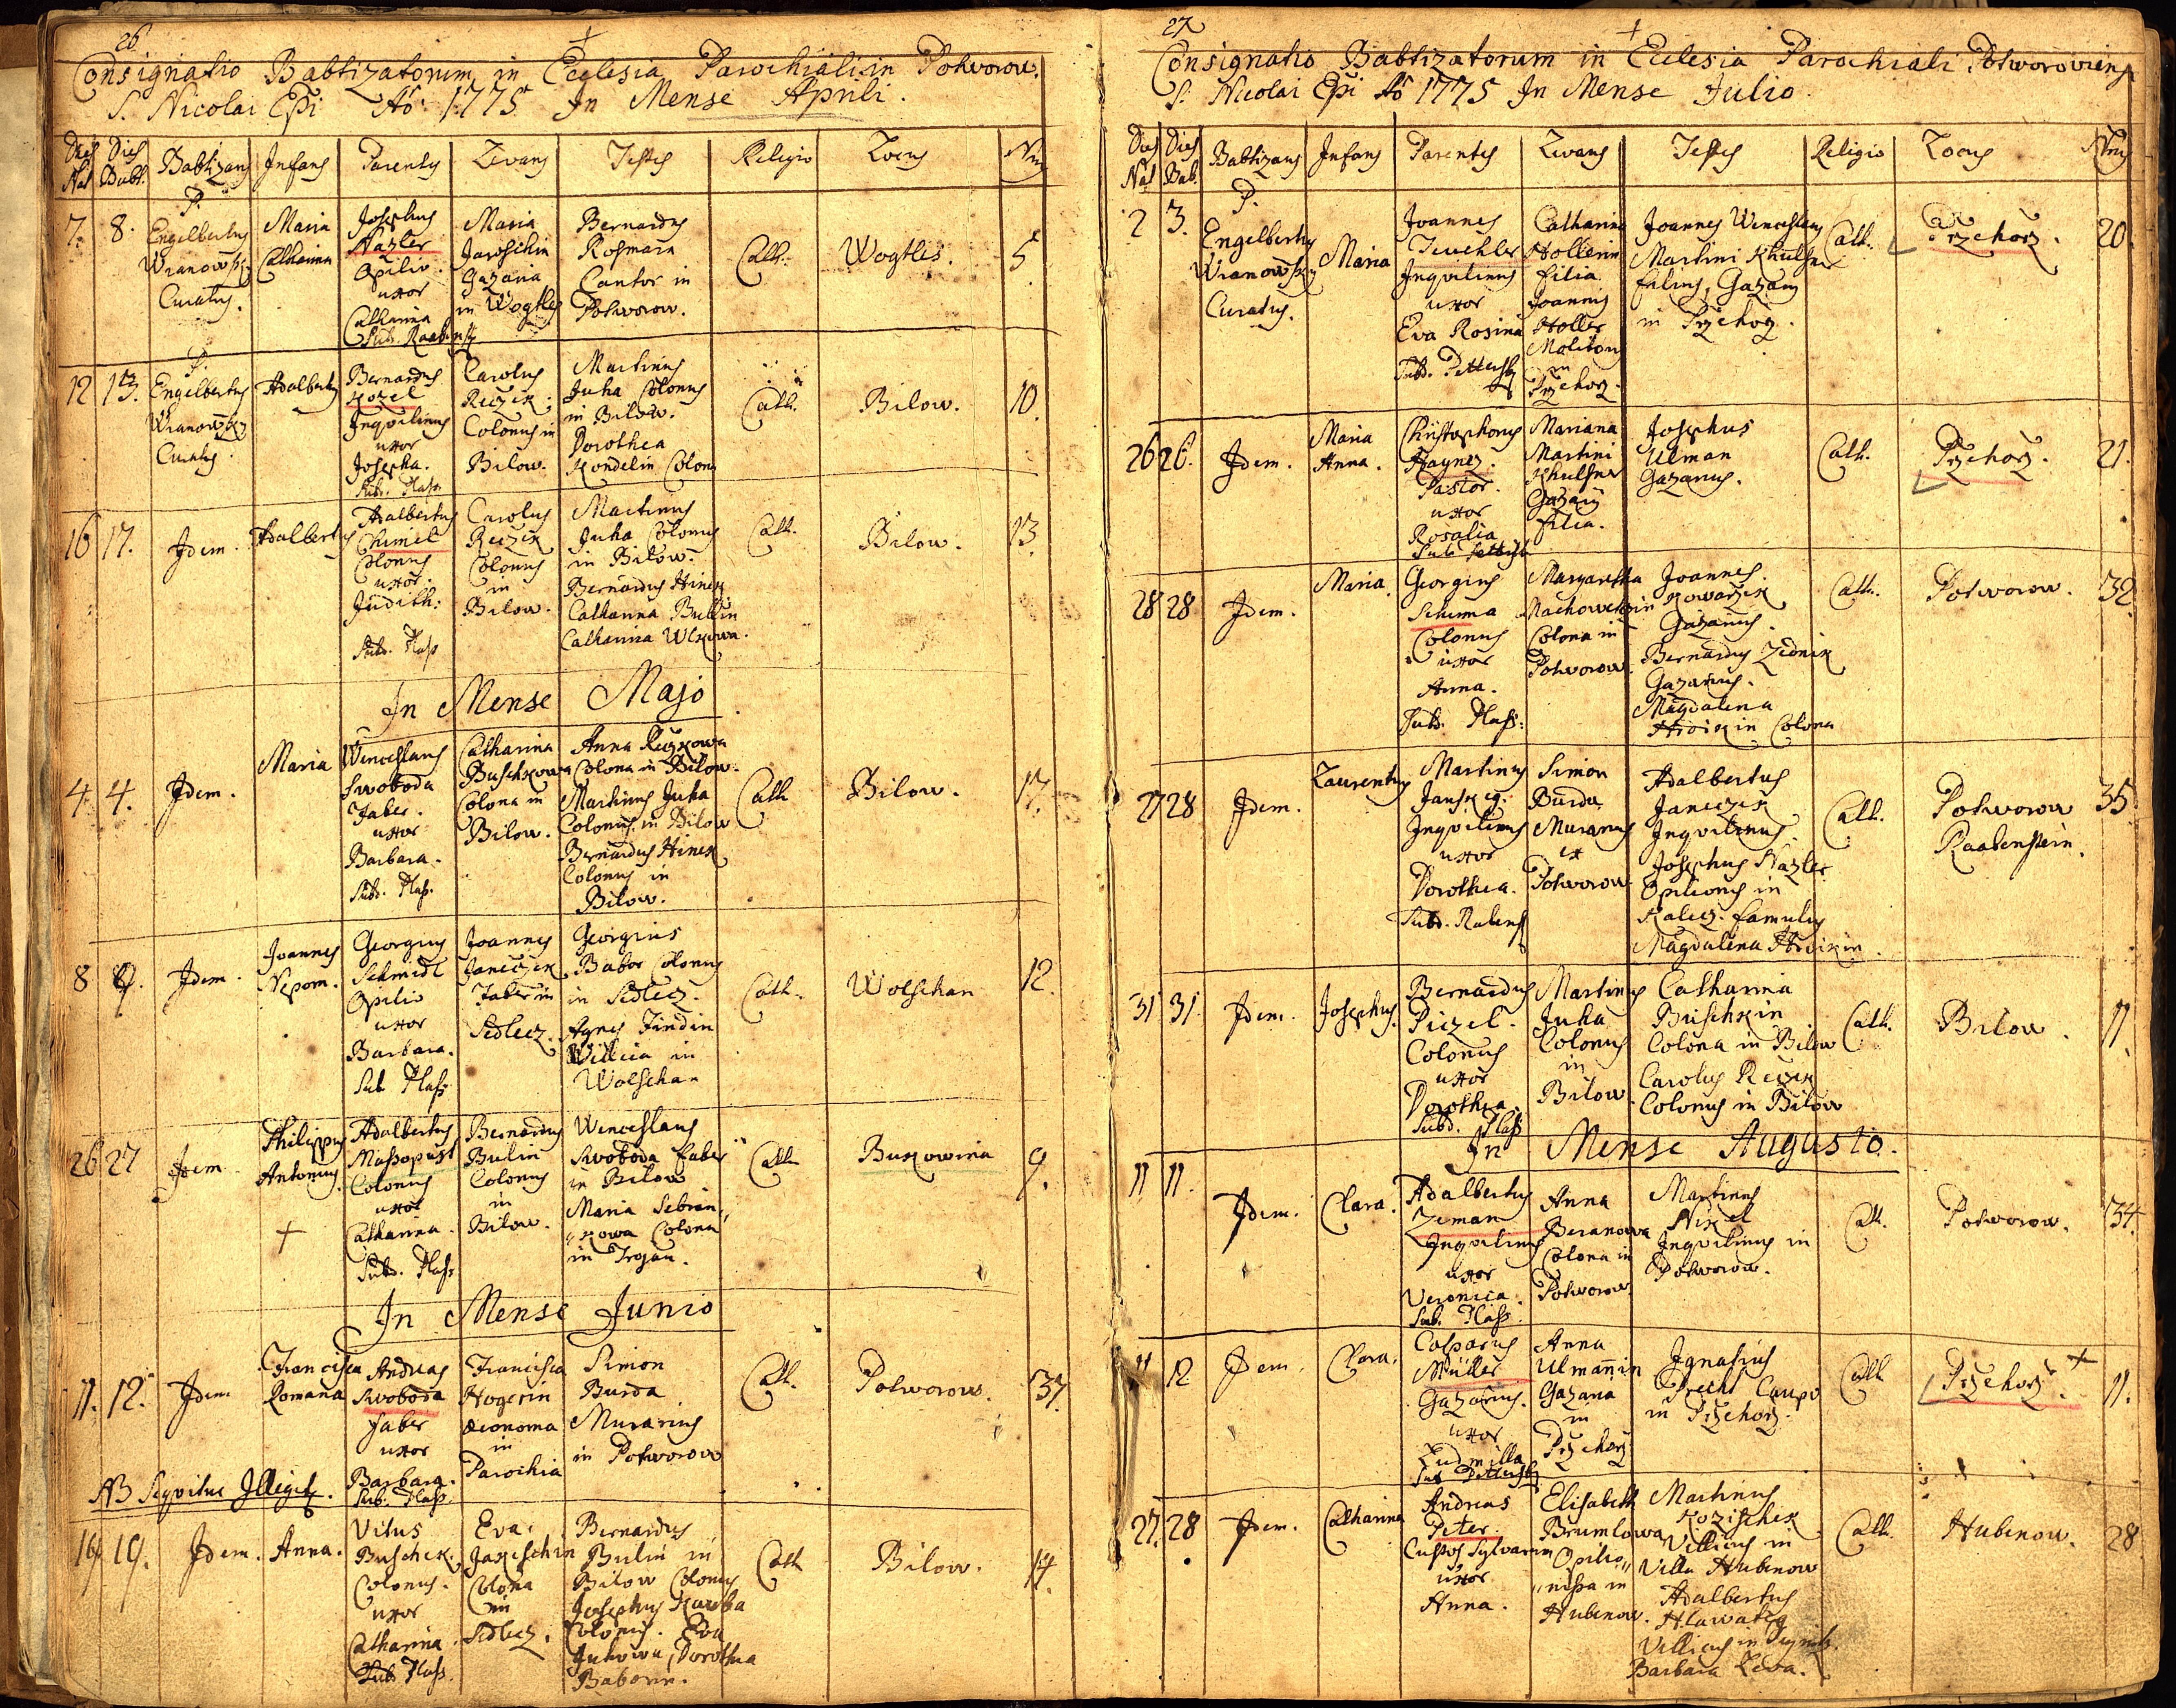 26
Consignatio Babtizatorum in Ecclesia Parochiali in Potworow.
S. Nicolai Epi Aō 1775 In Mense Aprili.
Dies Nat Dies Babt. Babtizans Infans Parentes Levans Testes Religio Locus Nrus
7. 8. P. Engelbertus Wranowsky Curatus.
Maria Catharina
Josephus
Opilio
uxor
Catharina
Maria
Jaroschin
Gazana
in Wogtles
Bernardus
Rosmara
Cantor in
Potworow.
Cath.
Wogtles.
5
12 13. P. Engelbertus Wranowsky Curatus
Adalbertus
Bernardus
Kozel
Inquilinus
uxor
Josepha.
Sub. Plass
Carolus
Reczek
Colonus in
Bilow.
Martinus
Juha Colonus
in Bilow.
Dorothea
Kondelin Colona
Cath.
Bilow.
10.
16 17. Idem.
Adalbertus
Adalbertus
Chmel
Colonus
uxor.
Judith.
Sub. Plass
Carolus
Reczek
Colonus
in
Bilow.
Martinus
Juha Colonus
in Bilow.
Bernardus Hinek
Catharina Bulin
Catharina Wlkowa.
Cath.
Bilow.
13.
In Mense Majo
4 4. Idem.
Maria
Wenceslaus
Swoboda
Faber.
uxor
Barbara.
Sub. Plass.
Catharina
Buschkowa
Colona in
Bilow.
Anna Reczkowa
Colona in Bilow.
Martinus Juha
Colonus in Bilow
Bernardus Hinek
Colonus in
Bilow.
Cath
Bilow.
17.
8 9. Idem
Joannes
Nepom.
Georgius
Schmidt
Opilio
uxor
Barbara.
Sub Plass
Joannes
Janeczek
Faber in
Sedlecz.
Georgius
Babor Colonus
in Sedlecz.
Agnes Findin
Villica in
Wolschan
Cath.
Wolschan
12.
26 27 Idem
Philippus
Antonius.
+
Adalbertus
Massopust
Colonus
uxor
Catharina.
Sub. Plass
Bernardus
Bulin
Colonus
in
Bilow.
Wenceslaus
Swoboda faber
in Bilow
Maria Sebran,,
,,kowa Colona
in Trojan.
Cath
Bukowina
9.
In Mense Junio
11. 12. Idem
Francisca
Romana
Andreas
Swoboda
faber
uxor
Barbara.
Sub. Plass.
Francisca
Hogerin
Œconoma
in
Parochia
Simon
Burda
Murarius
in Potworow
Cath.
Potworow.
37.
NB Sequitur Illegit.
19 19. Idem.
Anna.
Vitus
Buschek.
Colonus.
uxor
Catharina.
Sub Plass.
Eva
Jakeschin
Colona
in
Sedlecz.
Bernardus
Bulin in
Bilow Colonus
Josephus
Colonus. Eva
Juhowa, Dorothea
Baborin.
Cath
Bilow.
14.
27
Consignatio Babtizatorum in Ecclesia Parochiali Potworoviens
S. Nicolai Epi Aō 1775 In Mense Julio.
Dies Nat Dies Bab. Babtizans Infans Parentes Levans Testes Religio Locus Nrus
2 3. P. Engelbertus Wranowsky Curatus.
Maria
Joannes
Teuchler
Inquilinus
uxor
Eva Rosina
Catharina
Hollerin
filia
Joannis
Holler
Molitoris
in
Przehorz.
Joannes Wenceslaus
Martini
filius, Gazani
in Przehorz.
Cath.
Przehorz.
20.
26 26. Idem.
Maria
Anna.
Christophorus
Haynez.
Pastor.
uxor
Rosalia
Mariana
Martini
Gazani
filia.
Josephus
Ulman
Gazanus.
Cath.
Przehorz.
21.
28 28 Idem.
Maria.
Georgius
Schuma
Colonus
uxor
Anna.
Sub. Plass.
Margaretha
Colona in
Potworow.
Joannes
Kowarzik
Gazanus.
Bernardus Zednik
Gazanus.
Magdalena
Colona
Cath.
Potworow.
32.
27 28 Idem.
Laurentius
Martinus
Inquilinus
uxor
Dorothea.
Simon
Burda
Murarius
ex
Potworow.
Adalbertus
Janeczek
Inquilinus.
Josephus
Opilionis in
famulus
Magdalena
Cath.
Potworow
Raabenstein.
35
31 31. Idem.
Josephus.
Bernardus
Piczel.
Colonus
uxor
Dorothea.
Subd. Plass
Martinus
Juha
Colonus
in
Bilow.
Catharina
Buschkin
Colona in Bilow
Carolus Reczek
Colonus in Bilow
Cath.
Bilow.
11.
In Mense Augusto.
11 11. Idem.
Clara.
Adalbertus
Zeman
Inquilinus
uxor
Veronica.
Sub. Plass.
Anna
Beranowa
Colona in
Potworow.
Martinus
Inquilinus in
Potworow.
Cath.
Potworow.
34.
11 12 Idem.
Clara.
Casparus
Müller
Gazanus.
uxor
Ludmilla
Anna
Ulmanin
Gazana
in
Przehorz
Ignatius
Caupo
in Przehorz.
Cath
Przehorz. +
11.
27. 28 Idem.
Catharina
Andreas
Peter.
Custos Sylvarum
uxor
Anna.
Elisabeth
Brumlowa
Opilio,,
,,nissa in
Hubenow.
Martinus
Kozischek
Villicus in
Villa Hubenow
Adalbertus
Hlawatey
Villicus in
Barbara
Cath.
Hubenow.
28